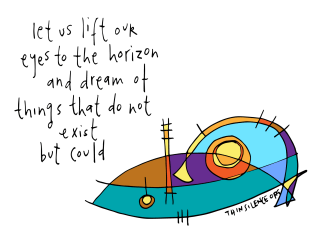 let us lift our
eyes to the horizon
and dream of
things that do not
exist
but could
THINSILENCE ORG